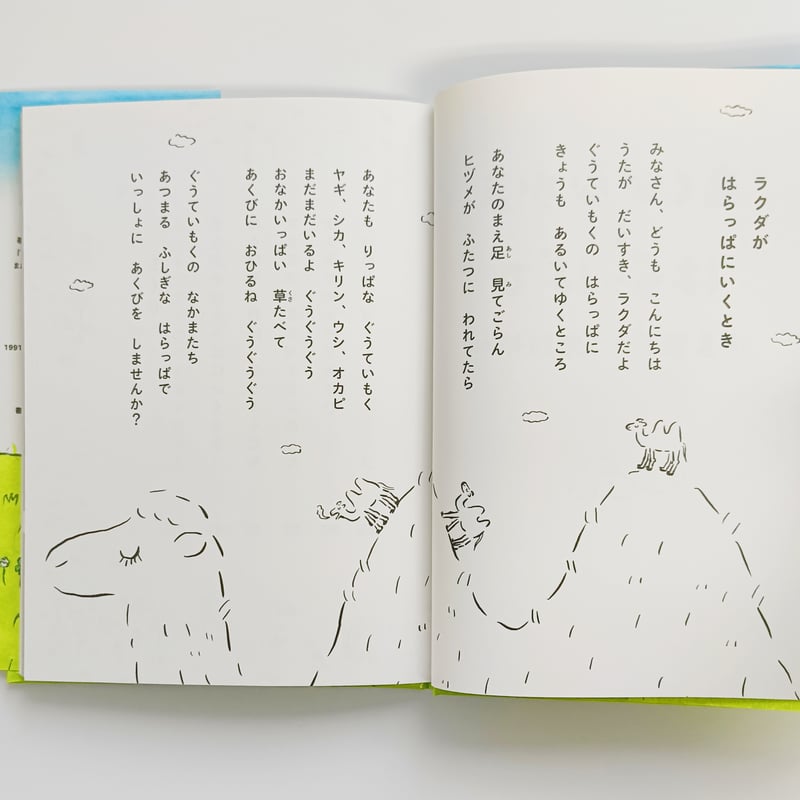 ラクダが
はらっぱにいくとき
みなさん、どうも　こんにちは
うたが　だいすき、ラクダだよ
ぐうていもくの　はらっぱに
きょうも　あるいてゆくところ
あなたのまえ足　見てごらん
ヒヅメが　ふたつに　われてたら
あなたも　りっぱな　ぐうていもく
ヤギ、シカ、キリン、ウシ、オカピ
まだまだいるよ　ぐうぐうぐう
おなかいっぱい　草たべて
あくびに　おひるね　ぐうぐうぐう
ぐうていもくの　なかまたち
あつまる　ふしぎな　はらっぱで
いっしょに　あくびを　しませんか？
1991